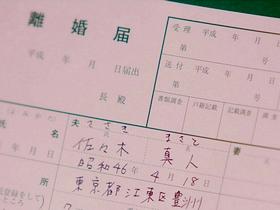 離婚届
受理 平成 年 月
第 号
平成 年 月 日届出
送付 平成 年
第 号
長殿
書類調査 戸籍記載 記載調査 調
夫 ささき まさと
妻
氏名
佐々木 真人
年 月 日
昭和46年4月18日
東京都江東区豊洲
ところ